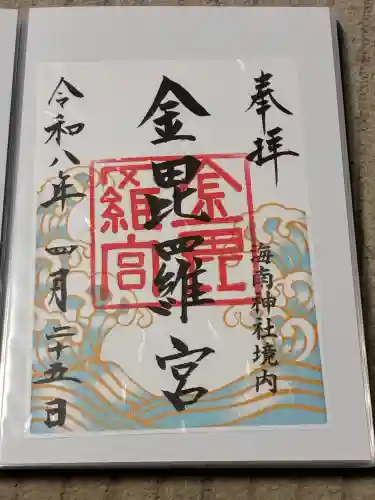 奉拝
海南神社境内
金毘羅宮
金毘羅宮
令和八年 四月 二十五日